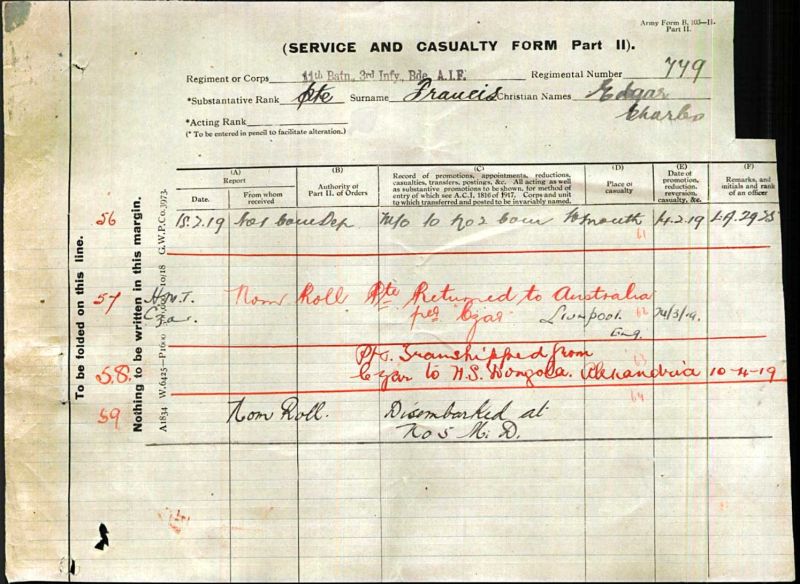 Army Form B. 103—II.
Part II.
(SERVICE AND CASUALTY FORM Part II).
Regiment or Corps 11th Batn, 3rd Infy, Bde, A.I.F. Regimental Number 779
*Substantative Rank Pte Surname Francis Christian Names Edgar
Charles
*Acting Rank
(* To be entered in pencil to facilitate alteration.)
(A)
Report
Date.
From whom received
(B)
Authority of Part II. of Orders
(C)
Record of promotions, appointments, reductions, casualties, transfers, postings, &c. All acting as well as substantive promotions to be shown, for method of entry of which see A.C.I. 1816 of 1917. Corps and unit to which transferred and posted to be invariably named.
(D)
Place of casualty
(E)
Date of promotion, reduction, reversion, casualty, &c.
(F)
Remarks, and initials and rank of an officer
To be folded on this line.
Nothing to be written in this margin.
A1834 W.6425—P1600 10/18 G.W.P.Co.3973.
56 15.2.19 No2 Com Dep M/O to No 2 Com W'mouth 14.2.19
61
57 H.M.T. Czar. Nom Roll Pte Returned to Australia
per Czar Liverpool. 62 Eng.
58. Pte. Transhipped from 63
Czar to H.S. Dongola. Alexandria 10-4-19
64
59 Nom Roll. Disembarked at
No 5 M.D.